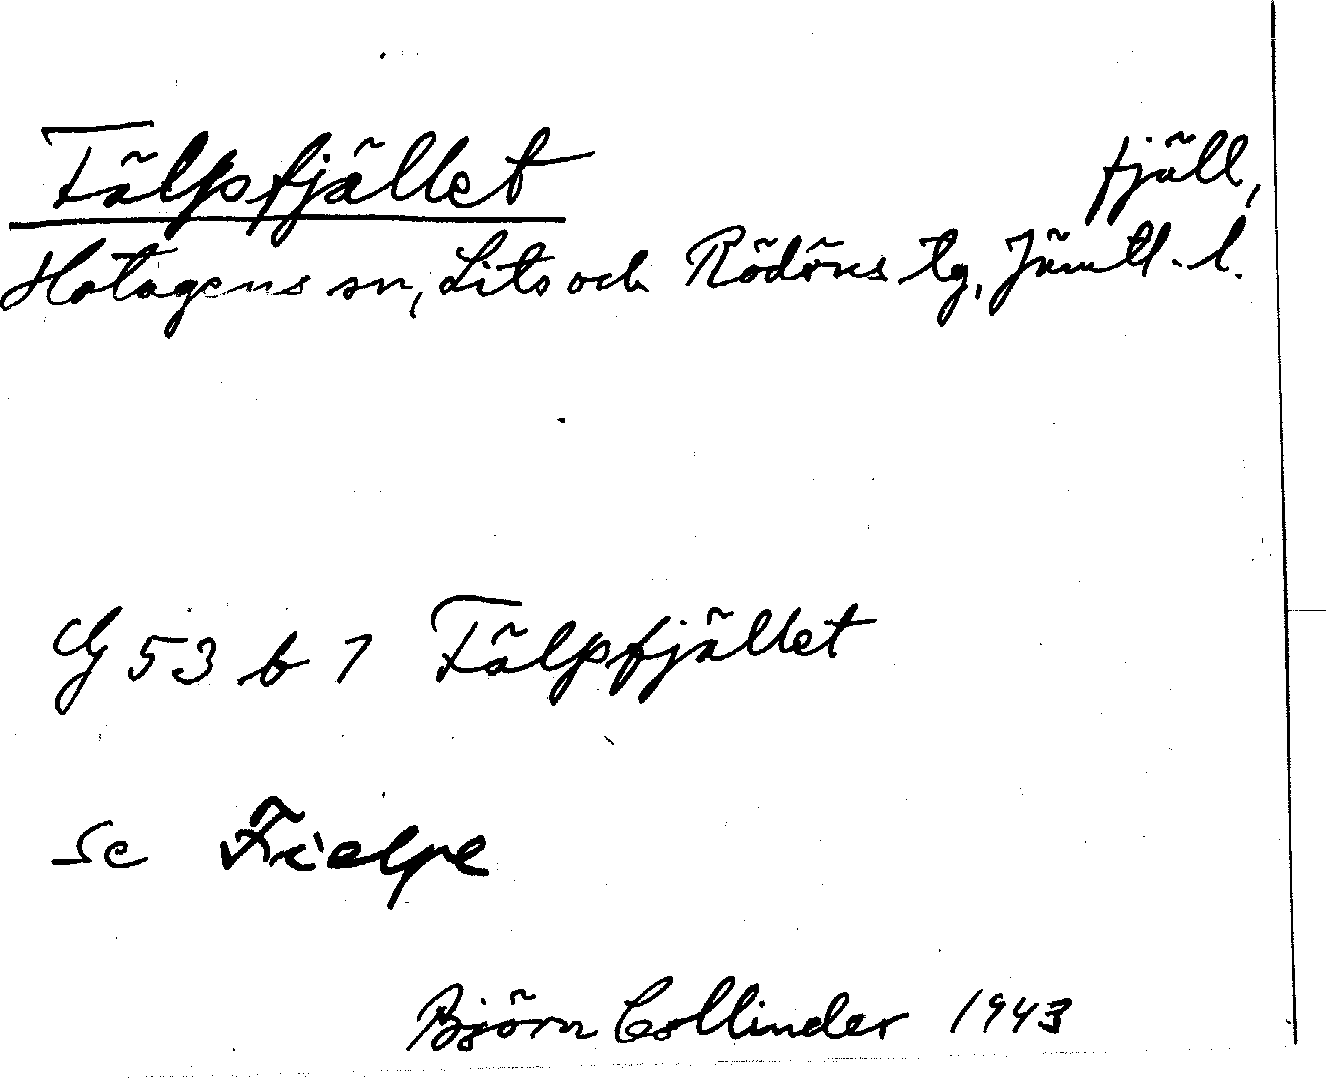 Tälpfjället fjäll,
Hotagens sn, Lits och Rödöns tg, Jämtl. l.
G 53 b 1 Tälpfjället
Se Tielpe
Björn Collinder 1943